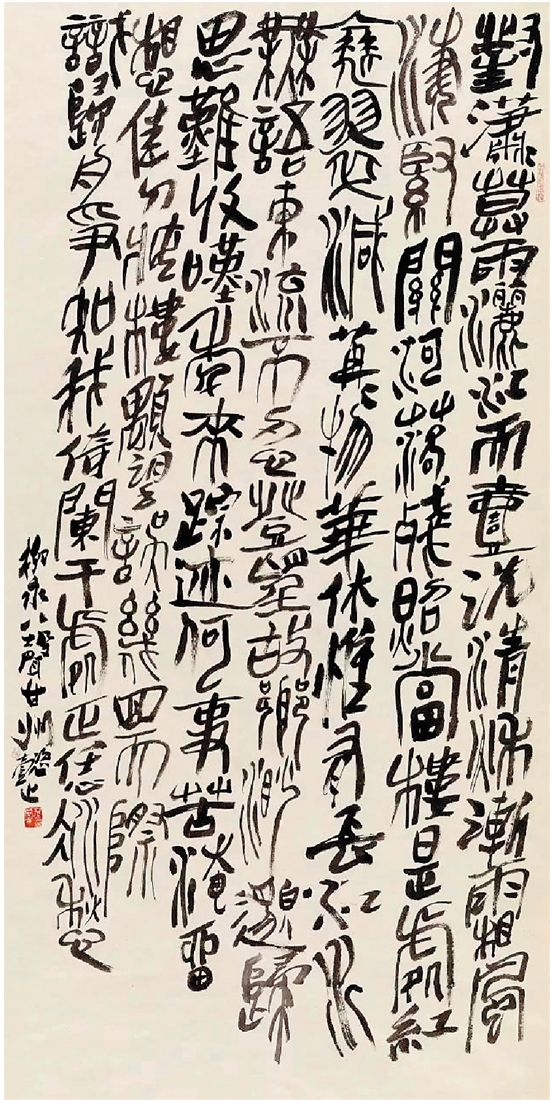 對瀟暮雨灑江天壹洗清秋漸霜風
淒緊關河落殘照當樓是處紅
衰翠減苒〻物華休惟有長江水
無語東流不忍登望故鄉渺邈歸
思難收嘆年來踪迹何事苦淹留
想佳人妝樓顒望誤幾回天際
識歸舟爭知我倚闌干處正恁凝愁
柳永八聲甘州